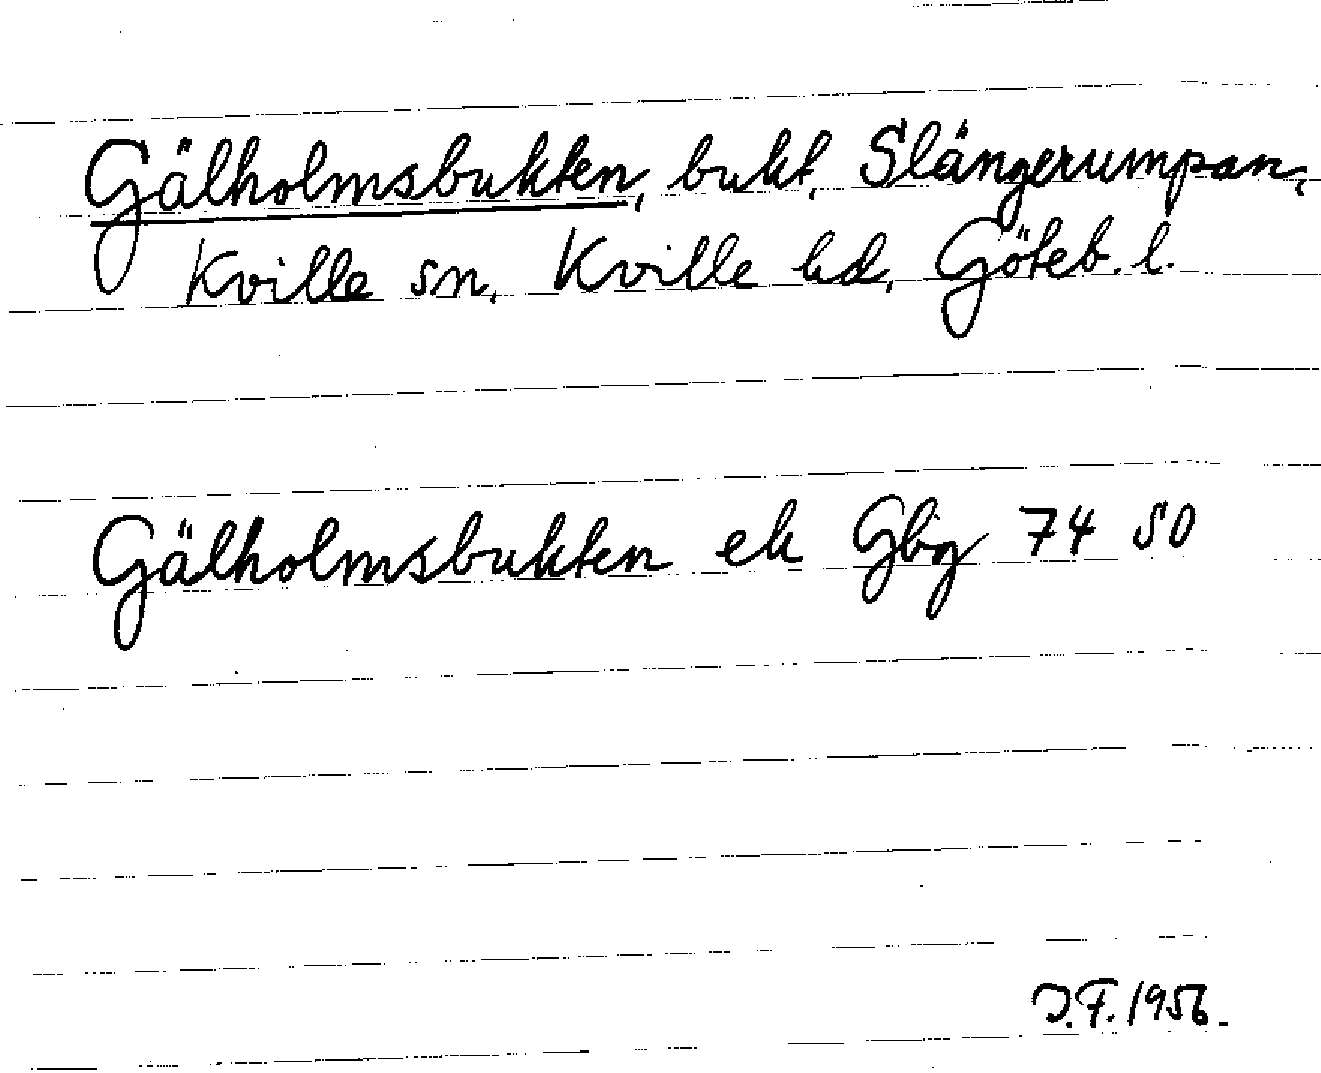 Gälholmsbukten, bukt, Slängerumpan,
Kville sn, Kville hd, Göteb. l.
Gälholmsbukten ek Gbg 74 SO
J.F. 1956.